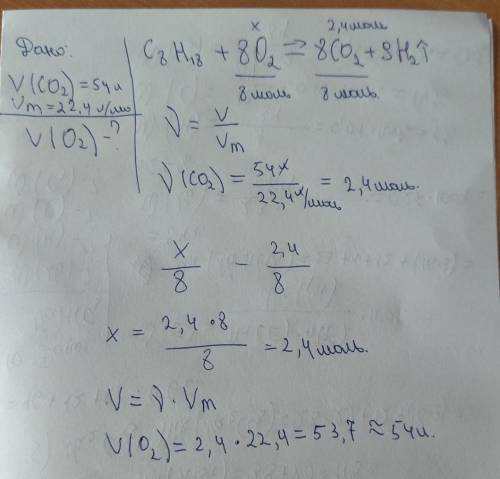 Дано:
V(CO₂)=54л
Vm=22,4 л/моль
V(O₂)-?
x 2,4 моль
C₈H₁₈ + 8O₂ = 8CO₂ + 9H₂↑
8 моль 8 моль
ν = V/Vm
ν(CO₂) = 54л/22,4л/моль = 2,4 моль.
x/8 - 2,4/8
x = 2,4·8/8 = 2,4 моль.
V = ν · Vm
V(O₂) = 2,4 · 22,4 = 53,7 ≈ 54л.